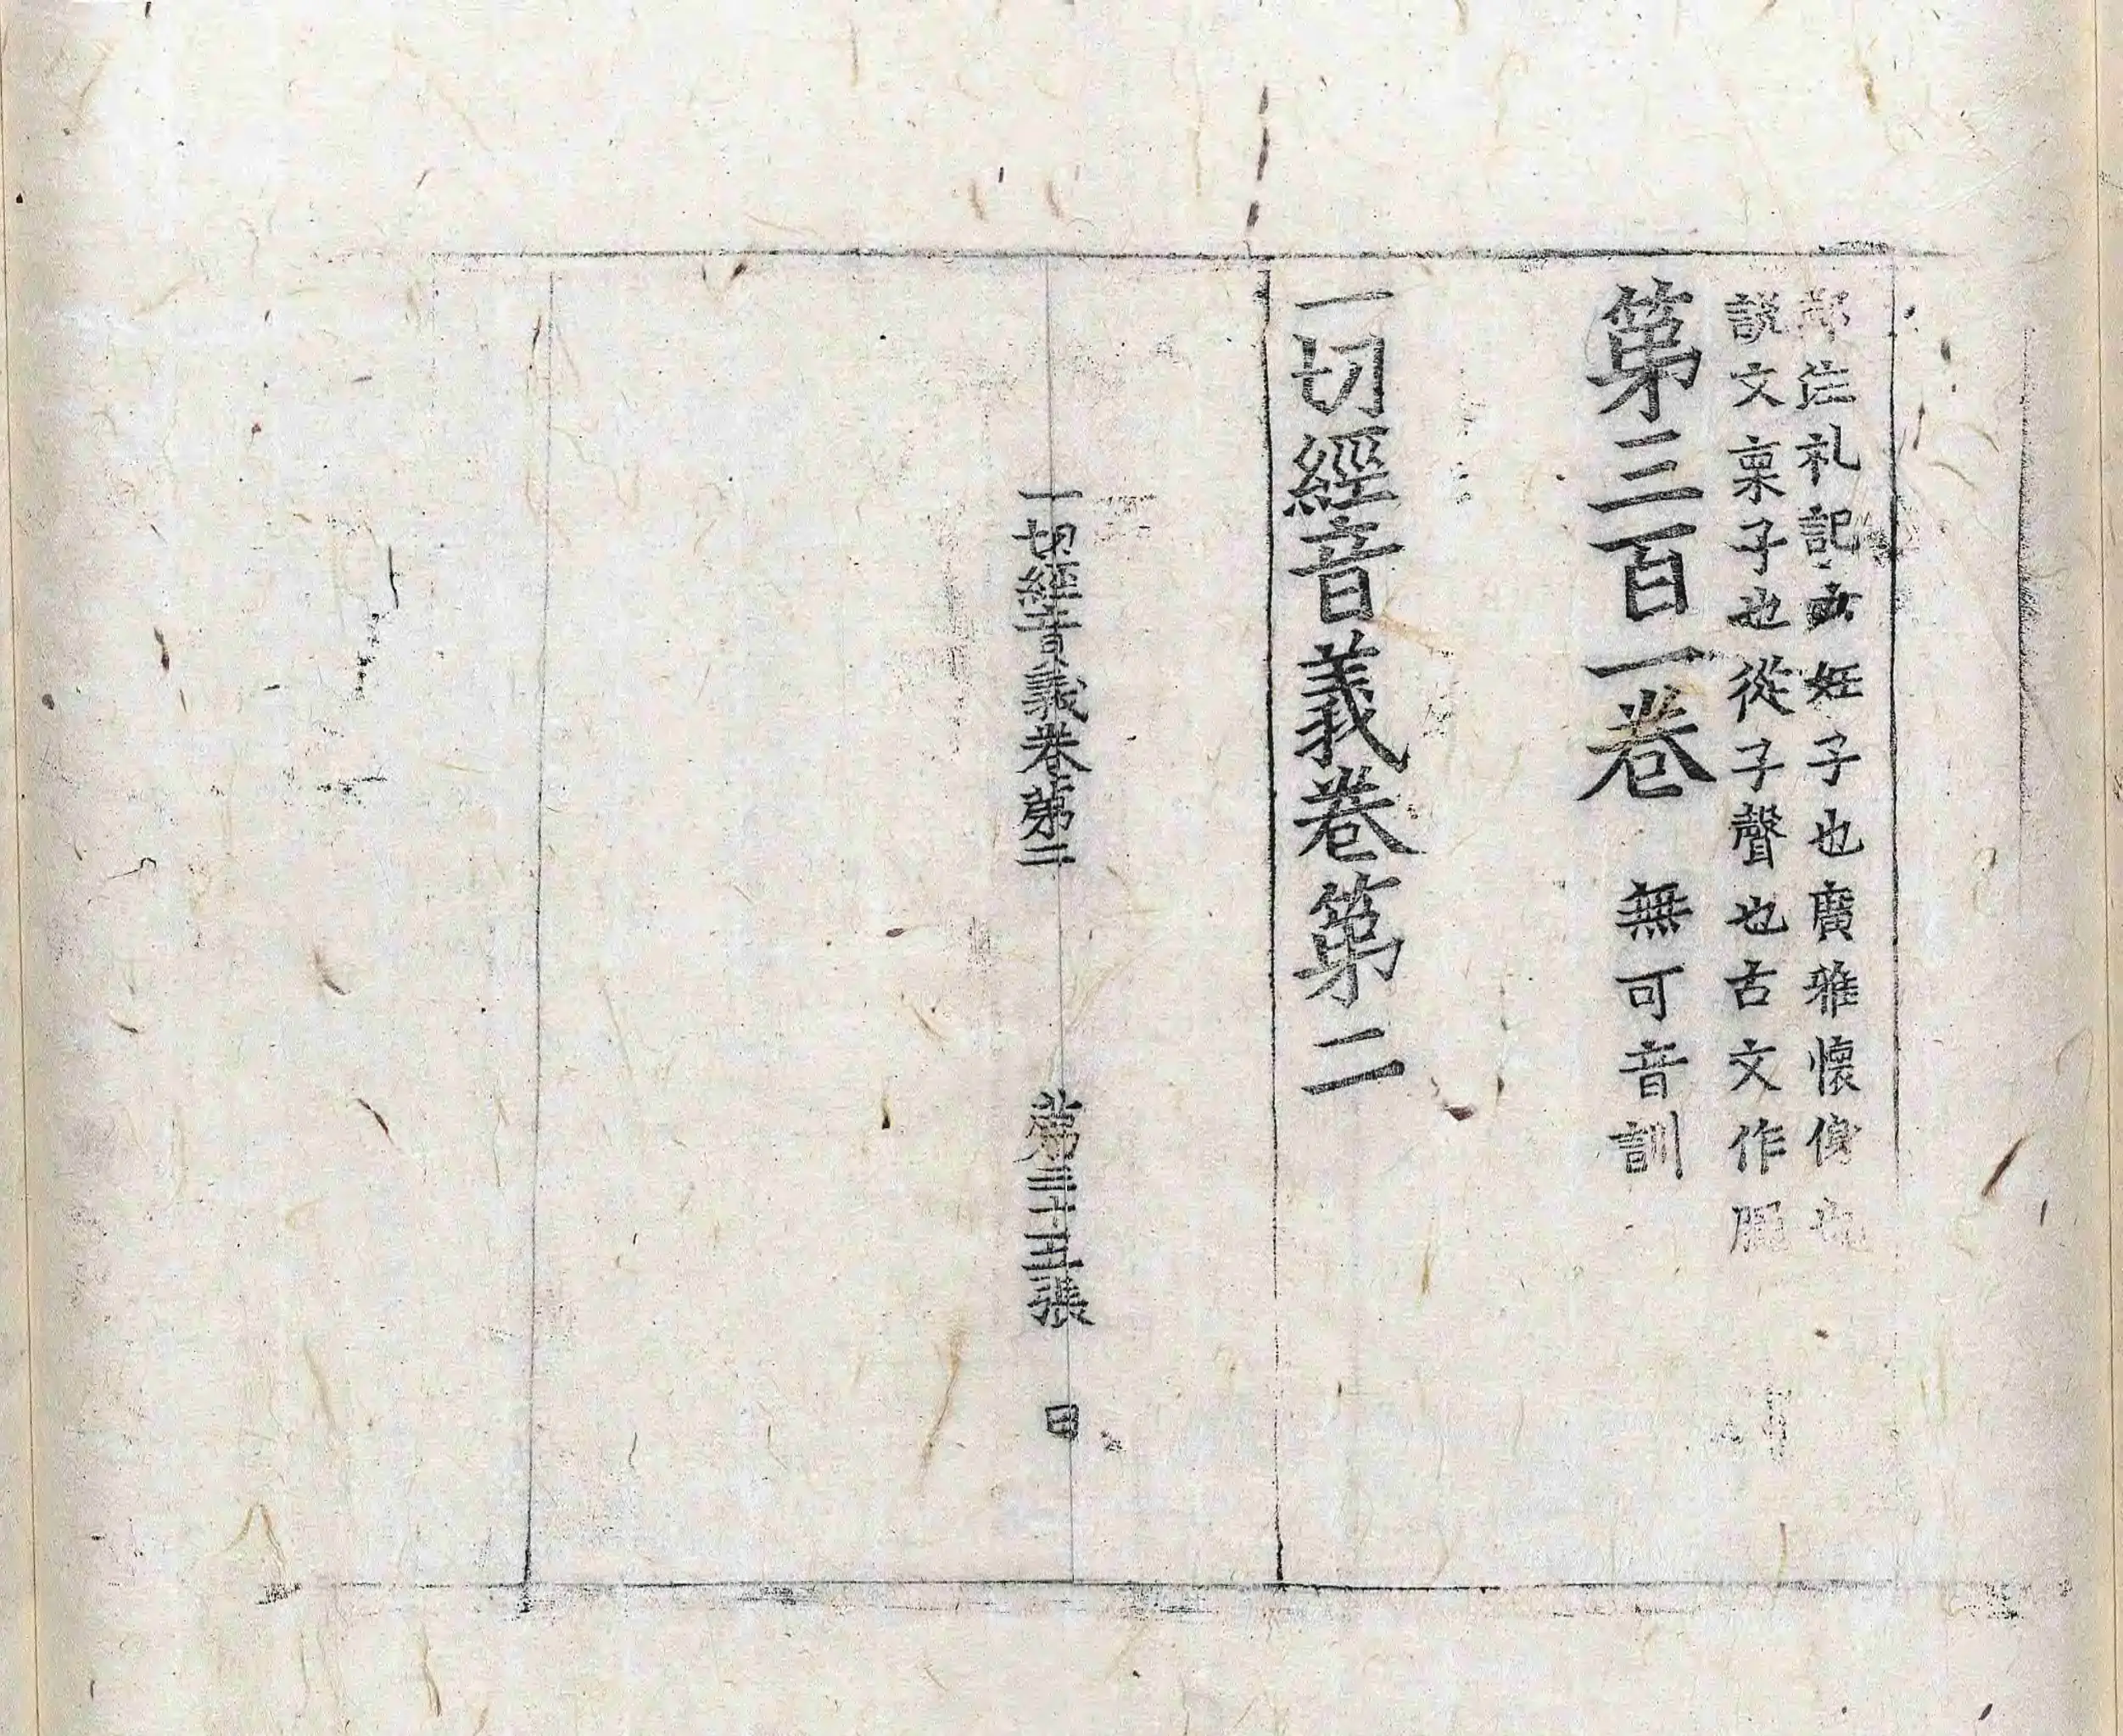 鄭注礼記云妊子也廣雅懷㑗也
說文稟子也從子聲也古文作𦜽
第三百一卷 無可音訓
一切經音義卷第二
一切經音義卷第二 第三十五張 日